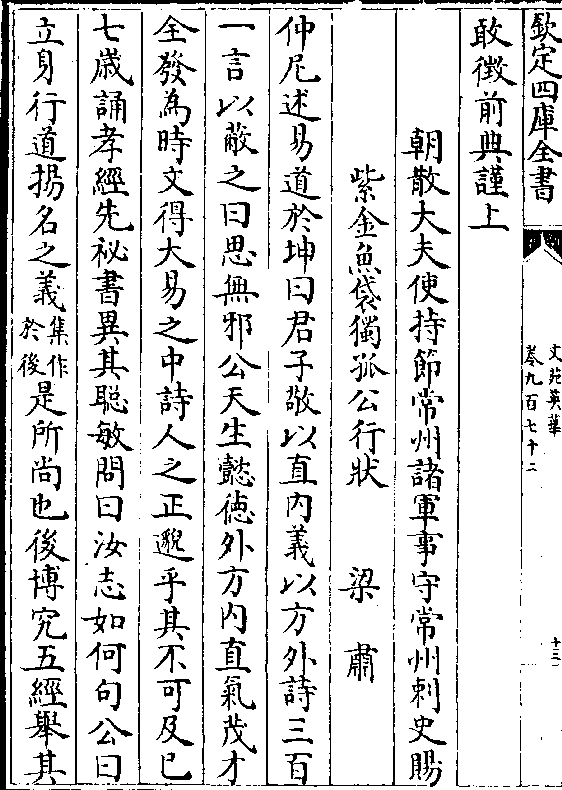 欽定四庫全書
文苑英華
卷九百七十二
十三
敢徴前典謹上
朝散大夫使持節常州諸軍事守常州刺史賜
紫金魚袋獨孤公行狀 梁肅
仲尼述易道於坤曰君子敬以直内義以方外詩三百
一言以蔽之曰思無邪公天生懿徳外方内直氣茂才
全發為時文得大易之中詩人之正邈乎其不可及已
七歳誦孝經先祕書異其聰敏問曰汝志如何句公曰
立身行道揚名之義集作於後是所尚也後博究五經舉其